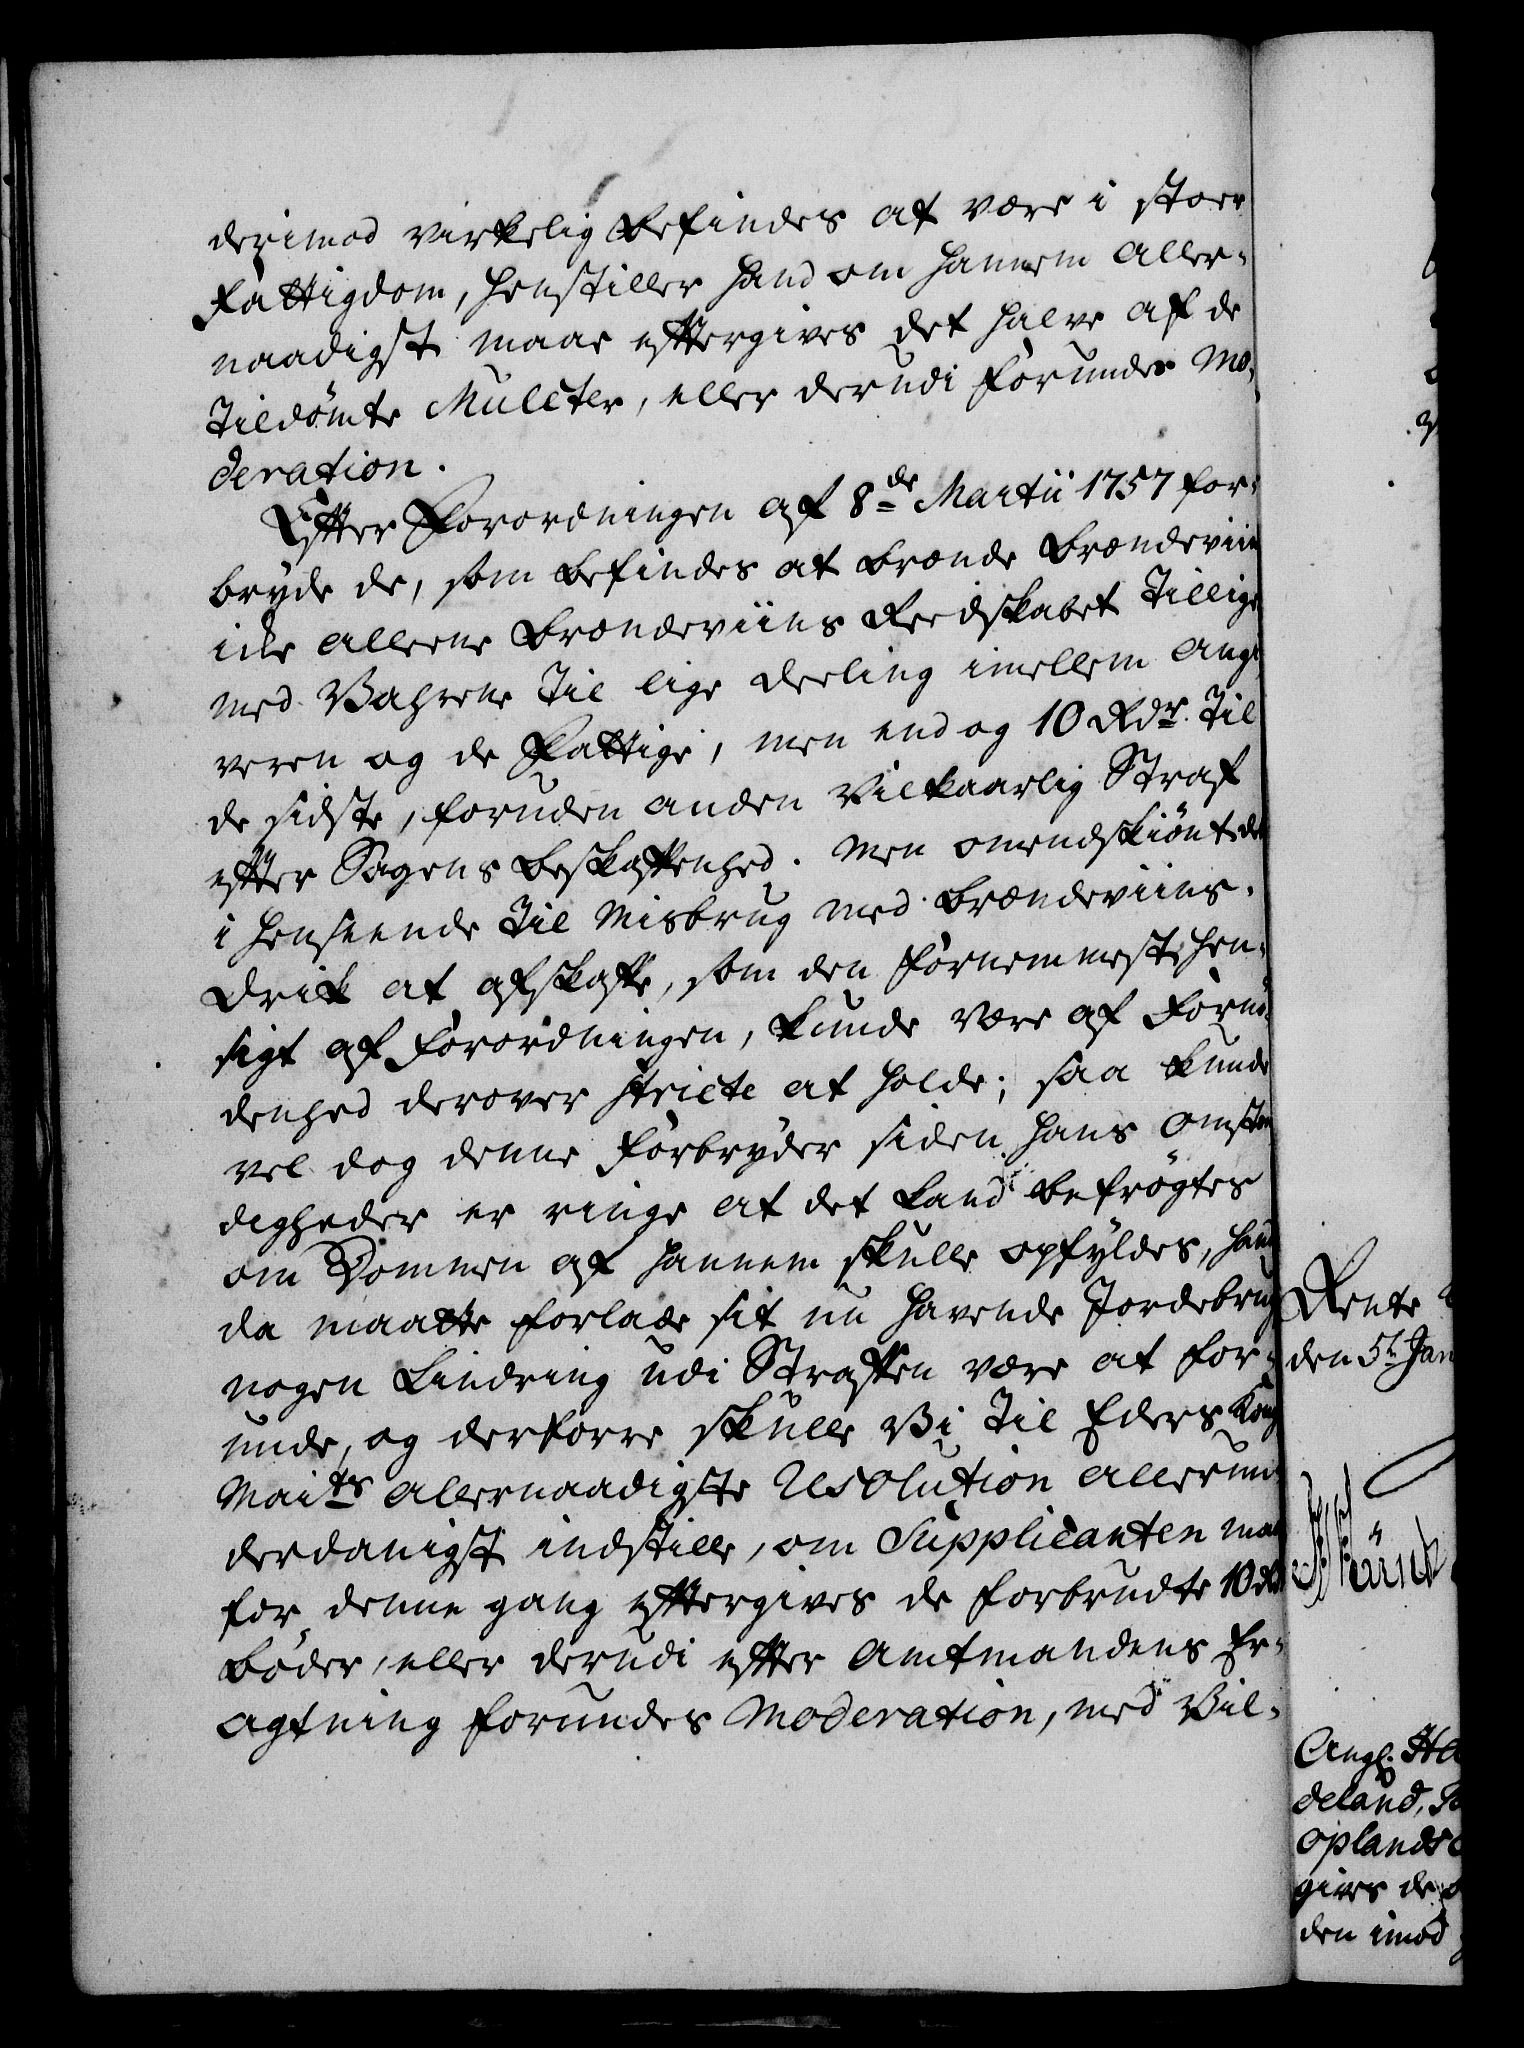 derimod virkelig befindes at være i stoer
Fattigdom, henstiller hand om hannem aller-
naadigst maae eftergives det halve af de
tildømte Mulcter, eller derudi forundes Mo-
deration.
Efter Forordningen af 8de Martii 1757 for-
bryde de, som befindes at brænde brændeviin
icke alleene brændeviins Reedskabet tillige
med Vahrene til lige deeling imellem Angi-
veren og de Fattige, men end og 10 Rdr. til
de sidste, foruden anden vilkaarlig Straf
efter Sagens beskaffenhed. Men omendskiönt det
i henseende til Misbrug med brændeviins-
drik at afskaffe, som den fornemmeste hen-
sigt af Forordningen, kunde være af fornö-
denhed derover stricte at holde; saa kunde
vel dog denne Forbryder siden hans omstæn-
digheder er ringe at det kand befrøgtes
om Dommen af hannem skulle opfyldes, hand
da maatte forlade sit nu havende Jordebrug
nogen Lindring udi Straffen være at for-
unde, og derforre skulle Vi til Eders Kong
Maits allernaadigste Resolution allerun-
derdanigst indstille, om Supplicanten maa
for denne gang eftergives de forbrudte 10 Rdr
bøder, eller derudi efter Amtmandens Er-
agtning forundes Moderation, med Vil-
Rente
den 5t Jan
Angl.
deland,
Oplands
gives de
den imod